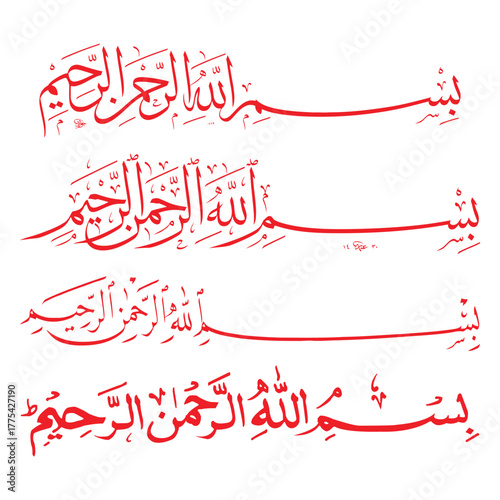 بِسْمِ اللَّهِ الرَّحْمَنِ الرَّحِيمِ
بِسْمِ اللَّهِ الرَّحْمَنِ الرَّحِيمِ
بِسْمِ اللَّهِ الرَّحْمَنِ الرَّحِيمِ
بِسْمِ اللَّهِ الرَّحْمَنِ الرَّحِيمِ
Adobe Stock | #1775427190